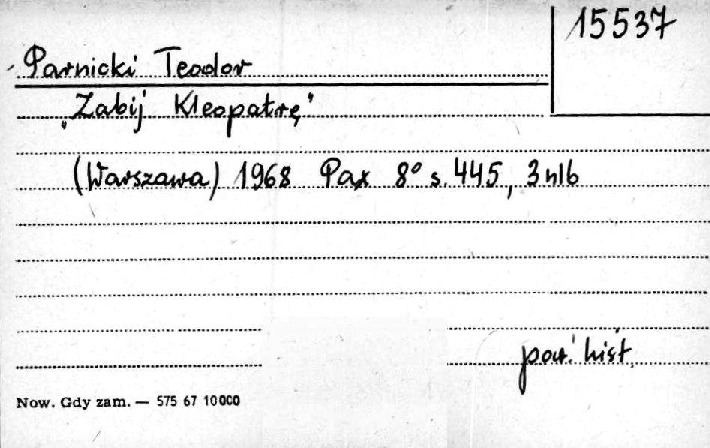 15537
Parnicki Teodor
"Zabij Kleopatrę"
(Warszawa) 1968 Pax 8° s. 445, 3 nlb
pow. hist.
Now. Gdy zam. — 575 67 10000